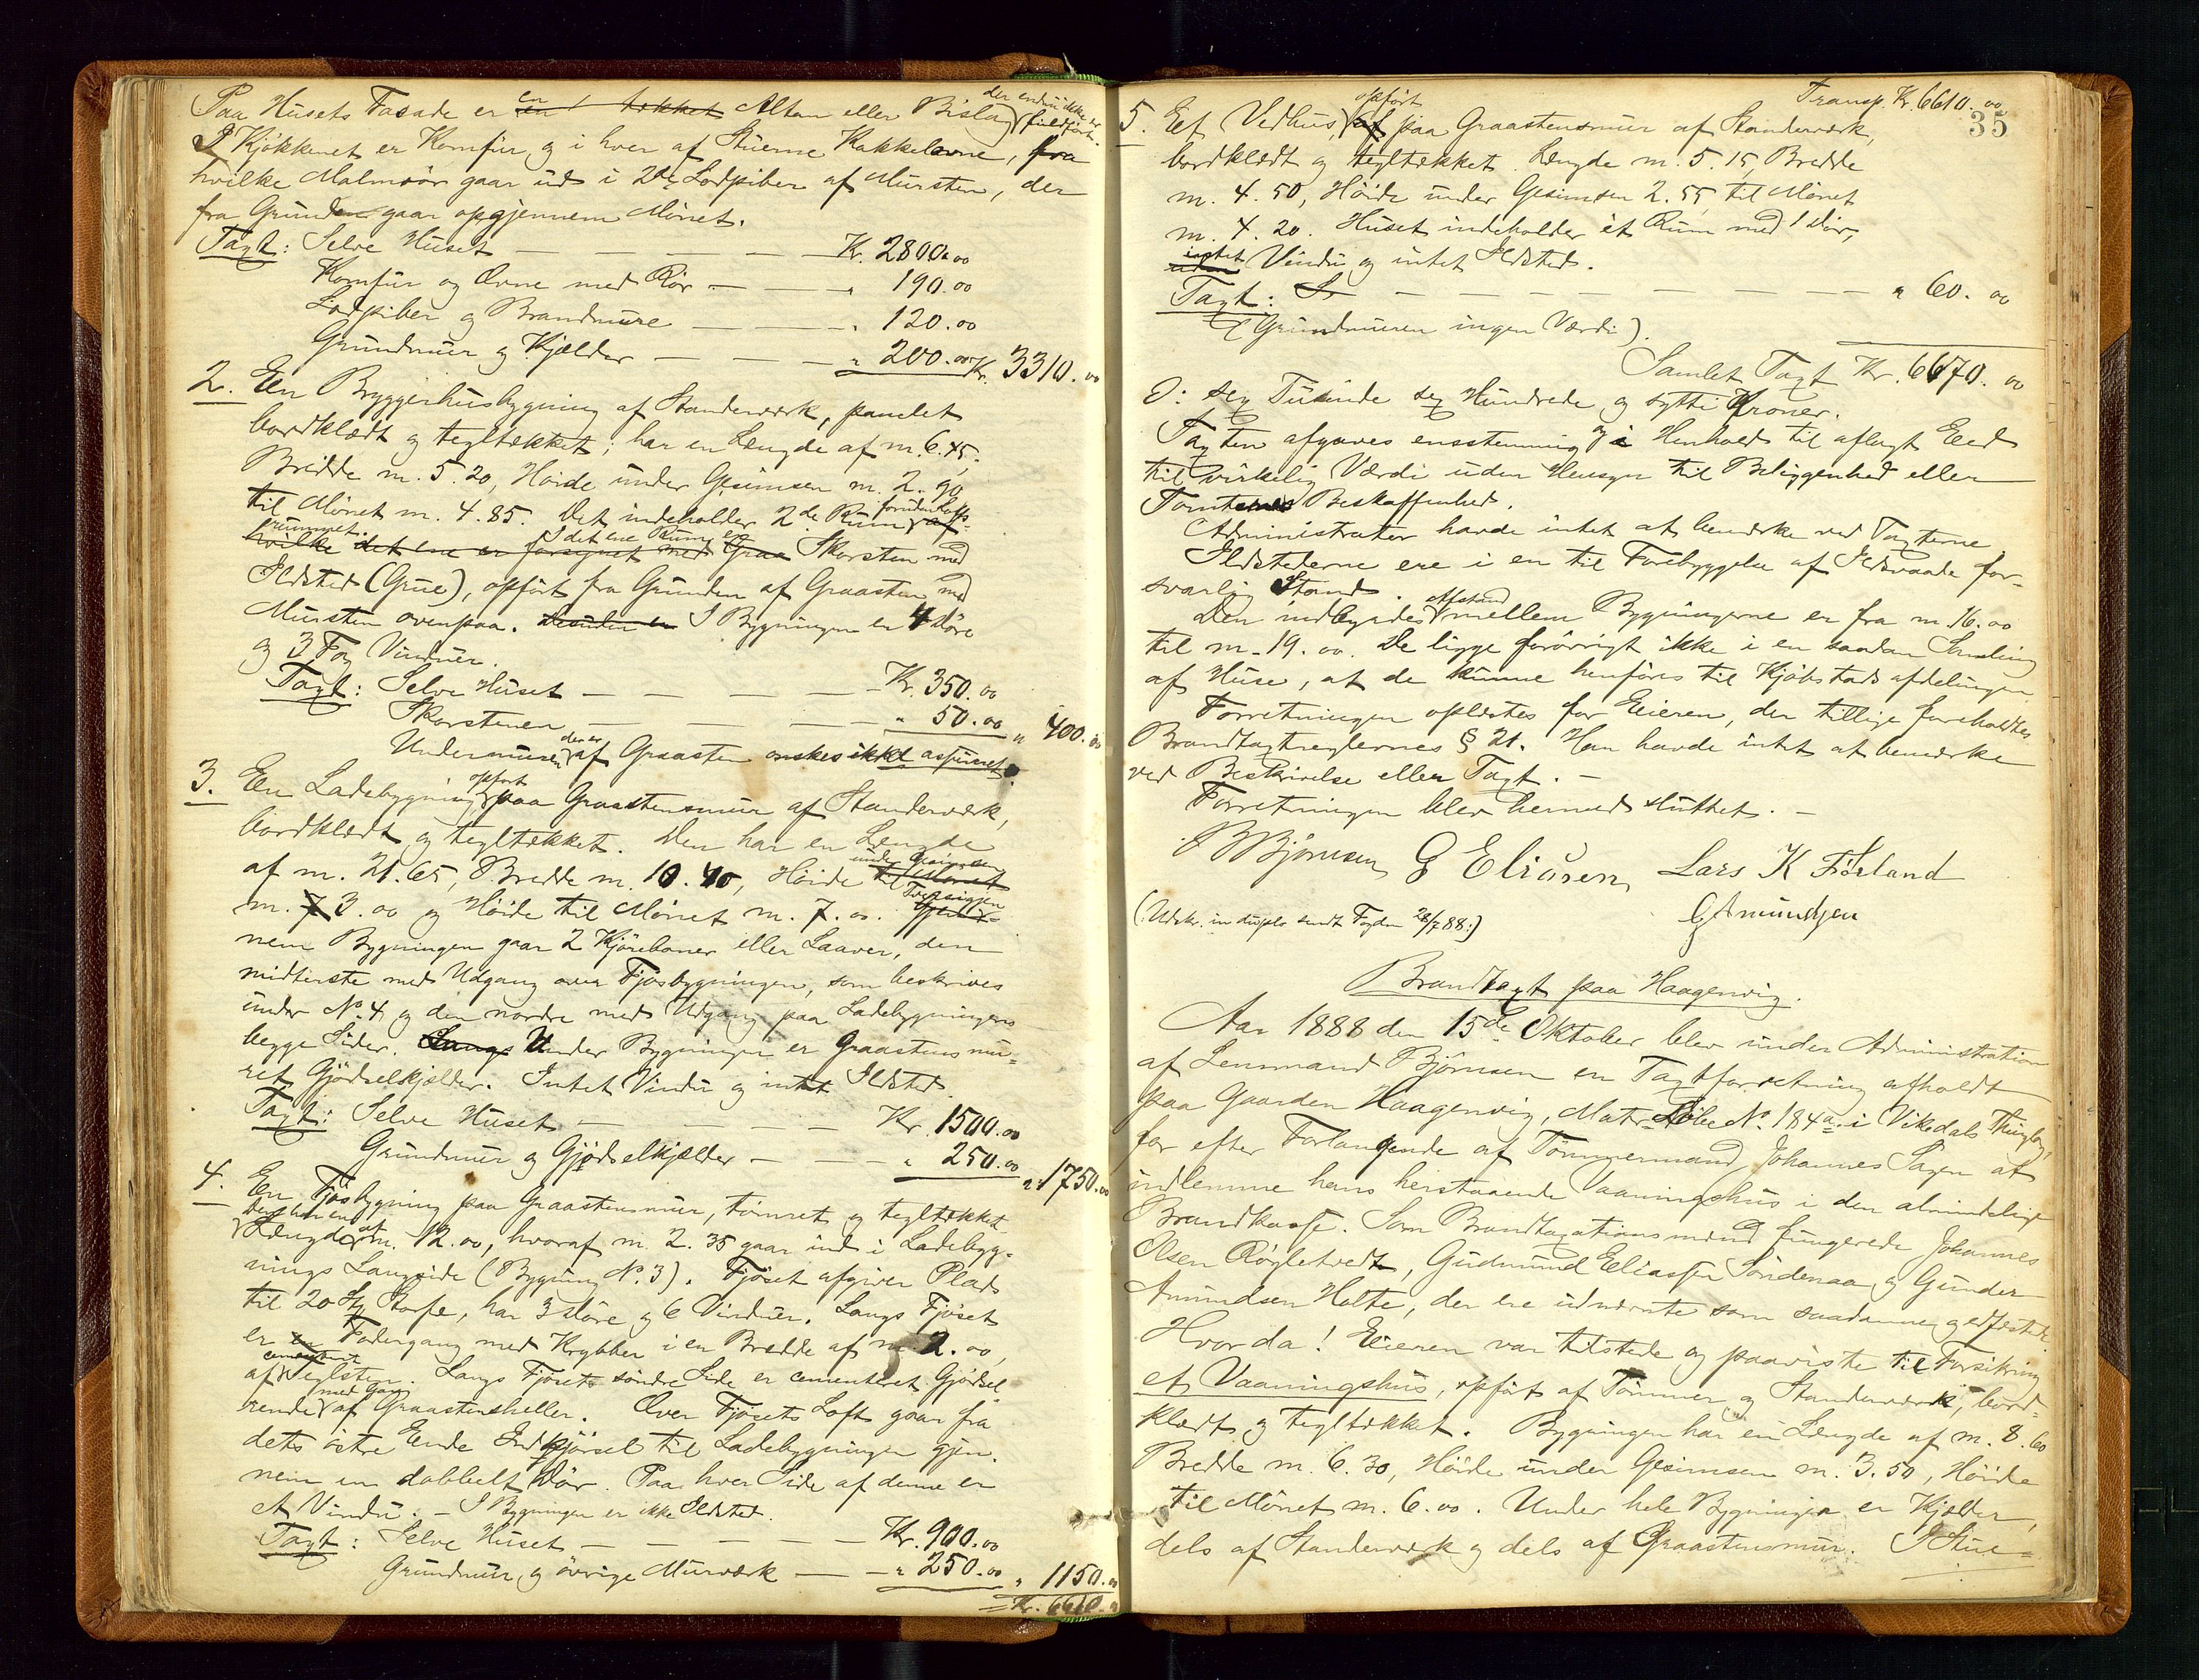 Paa Husets Fasade er en Altan eller Bislag der endnu ikke er fuldført.
I Kjøkkenet er Komfür og i hver af Stuerne Kakkelovne, fra
hvilke Malmrör gaar ud i 2de Lodpiber af Mursten, der
fra Grunden gaar opgjennem Mönet.
Taxt: Selve Huset — — — — Kr. 2800.00
Komfür og Ovne med Rör — — " 190.00
Lodpiber og Brandmure — — — " 120.00
Grundmur og Kjælder — — — " 200.00 Kr. 3310.00
2. Een Bryggerhusbygning af Standerværk, panelet
bordklædt og tegltækket; har en Længde af m. 6.45,
Bredde m. 5.20, Höide under Gesimsen m. 2.90
til Mönet m. 4.85. Det indeholder 2de Rum foruden Lofts-
rummet. I det ene Rum er Skorsten med
Ildsted (Grue), opfört fra Grunden af Graasten med
Mursten ovenpaa. I Bygningen er 4 Döre
og 3 Fag Vinduer.
Taxt: Selve Huset — — — — Kr. 350.00
Skorstenen — — — — " 50.00 " 400.00
Undermuren der er af Graasten önskes ikke assureret.
3. Een Ladebygning opfört paa Graastensmur af Standerværk,
bordklædt og tegltækket. Den har en Længde
af m. 21.65, Bredde m. 10.40, Höide under Gesimsen
m. 3.00 og Höide til Mönet m. 7.00. Tversigjen-
nem Bygningen gaar 2 Kjörebaner eller Laaver, den
midterste med Udgang over Fjösbygningen, som beskrives
under No. 4 og den nordre med Udgang paa Ladebygningens
begge Sider. Under Bygningen er Graastensmu-
ret Gjödselkjælder. Intet Vindu og intet Ildsted.
Taxt: Selve Huset — — — — Kr. 1500.00
Grundmur og Gjödselkjælder — — — " 250.00 " 1750.00
4. En Fjösbygning paa Graastensmur, tömret og tegltækket
Den har en Længde af m. 12.00, hvoraf m. 2.35 gaar ind i Ladebyg-
nings Langside (Bygning No. 3). Fjöset afgiver Plads
til 20 Stk Storfe, har 3 Döre og 6 Vinduer. Langs Fjöset
er Fodergang med Krybber i en Bredde af m. 2.00,
af cementeret Teglsten. Langs Fjösets söndre Side er cementeret Gjödsel
rende med Gang af Graastensheller. Over Fjösets Loft gaar fra
dets östre Ende Indkjörsel til Ladebygningen gjen-
nem en dobbelt Dör. Paa hver Side af denne er
et Vindu. — I Bygningen er ikke Ildsted.
Taxt: Selve Huset — — — — — Kr. 900.00
Grundmur og övrige Murværk — — " 250.00 " 1150.00
Kr. 6610.00
Transp. Kr. 6610.00
35
5. Eet Vedhus, opfört paa Graastensmur af Standerværk,
bordklædt og tegltækket. Længde m. 5.15, Bredde
m. 4.50, Höide under Gesimsen 2.55, til Mönet
m. 4.20. Huset indeholder et Rum med 1 Dör,
intet Vindu og intet Ildsted.
Taxt: — — — — — — — " 60.00
(Grundmuren ingen Værdi).
Samlet Taxt Kr. 6670.00
D: sex Tusinde sex Hundrede og sytti Kroner.
Taxten afgaves enstemmig og i Henhold til aflagt Eed
til virkelig Værdi uden Hensyn til Beliggenhed eller
Tomtens Beskaffenhed.
Administrator havde intet at bemærke ved Taxterne
Ildstederne ere i en til Forebyggelse af Ildsvaade for-
svarlig Stand.
Den indbyrdes Afstand mellem Bygningerne er fra m. 16.00
til m. 19.00. De ligge forövrigt ikke i en saadan Samling
af Huse, at de kunne henföres til Kjöbstadsafdelingen
Forretningen oplæstes for Eieren, der tillige foreholdtes
Brandtaxtreglernes § 21. Han havde intet at bemærke
ved Beskrivelse eller Taxt. —
Forretningen blev hermed sluttet. —
B Björnsen G Eliasen, Lars K Fisland
G Amundsen
(Udskr. in duplo sendt Fogden 28/7 88.)
Brandtaxt paa Haagenvig.
Aar 1888 den 15de Oktober blev under Administration
af Lensmand Björnsen en Taxtforretning afholdt
paa Gaarden Haagenvig, Matr. Löbe No. 184a i Vikedals Thinglag,
for efter Forlangende af Tömmermand Johannes Sagen at
indlemme hans herstaaende Vaaningshus i den almindelige
Brandkasse. Som Brandtaxationsmænd fungerede Johannes
Olsen Röghetvedt, Gudmund Eliassen Söndenaa og Gunder
Amundsen Holte, der ere udnævnte som saadanne og edfæstede.
Hvorda! Eieren var tilstede og paaviste til Forsikring
et Vaaningshus, opfört af Tömmer og Standerværk, bord-
klædt og tegltækket. Bygningen har en Længde af m. 8.60
Bredde m. 6.30, Höide under Gesimsen m. 3.50, Höide
til Mönet m. 6.00. Under hele Bygningen er Kjælder,
dels af Standerværk og dels af Graastensmur. I Stue-